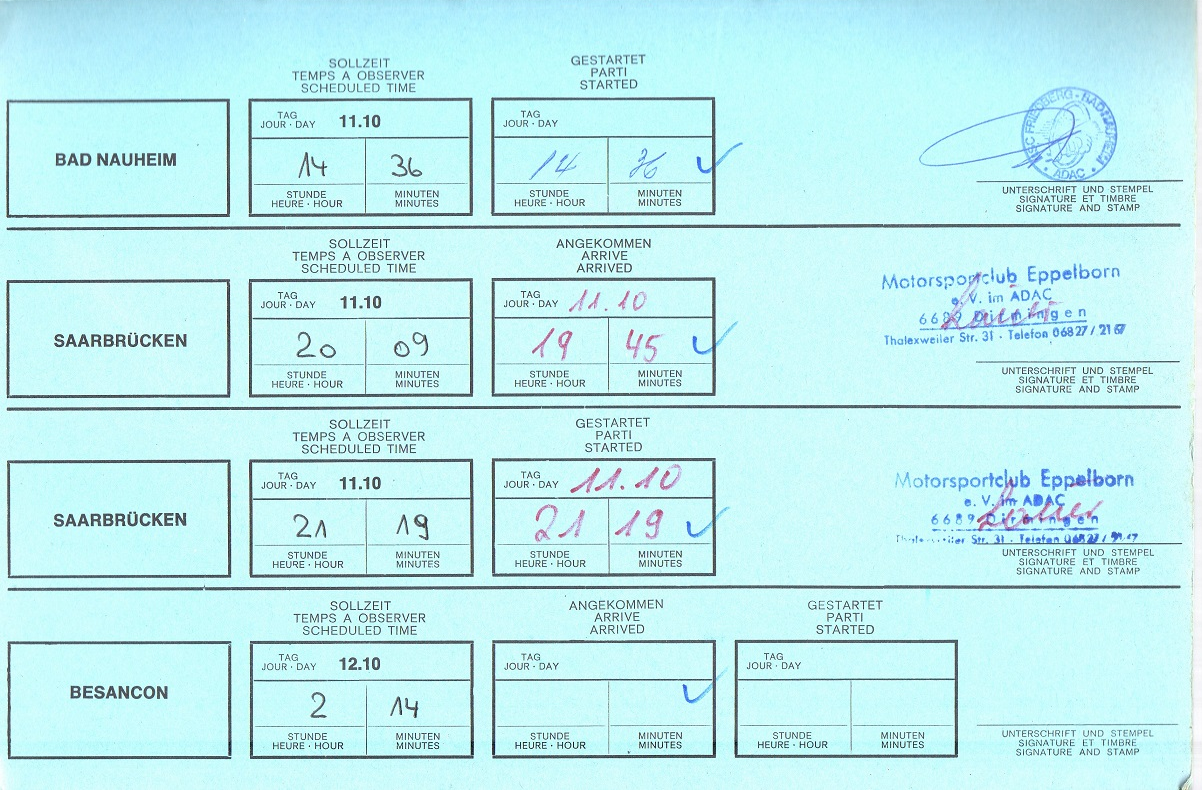 SOLLZEIT
TEMPS A OBSERVER
SCHEDULED TIME
GESTARTET
PARTI
STARTED
BAD NAUHEIM
TAG
JOUR · DAY 11.10
14 36
STUNDE
HEURE · HOUR
MINUTEN
MINUTES
TAG
JOUR · DAY
14 36
STUNDE
HEURE · HOUR
MINUTEN
MINUTES
MSC FRIEDBERG - BAD NAUHEIM
· ADAC ·
UNTERSCHRIFT UND STEMPEL
SIGNATURE ET TIMBRE
SIGNATURE AND STAMP
SOLLZEIT
TEMPS A OBSERVER
SCHEDULED TIME
ANGEKOMMEN
ARRIVE
ARRIVED
SAARBRÜCKEN
TAG
JOUR · DAY 11.10
20 09
STUNDE
HEURE · HOUR
MINUTEN
MINUTES
TAG
JOUR · DAY 11.10
19 45
STUNDE
HEURE · HOUR
MINUTEN
MINUTES
Motorsportclub Eppelborn
e. V. im ADAC
6689 Dirmingen
Thalexweiler Str. 31 · Telefon 06827/2167
UNTERSCHRIFT UND STEMPEL
SIGNATURE ET TIMBRE
SIGNATURE AND STAMP
SOLLZEIT
TEMPS A OBSERVER
SCHEDULED TIME
GESTARTET
PARTI
STARTED
SAARBRÜCKEN
TAG
JOUR · DAY 11.10
21 19
STUNDE
HEURE · HOUR
MINUTEN
MINUTES
TAG
JOUR · DAY 11.10
21 19
STUNDE
HEURE · HOUR
MINUTEN
MINUTES
Motorsportclub Eppelborn
e. V. im ADAC
6689 Dirmingen
Str. 31 · Telefon
UNTERSCHRIFT UND STEMPEL
SIGNATURE ET TIMBRE
SIGNATURE AND STAMP
SOLLZEIT
TEMPS A OBSERVER
SCHEDULED TIME
ANGEKOMMEN
ARRIVE
ARRIVED
GESTARTET
PARTI
STARTED
BESANCON
TAG
JOUR · DAY 12.10
2 14
STUNDE
HEURE · HOUR
MINUTEN
MINUTES
TAG
JOUR · DAY
STUNDE
HEURE · HOUR
MINUTEN
MINUTES
TAG
JOUR · DAY
STUNDE
HEURE · HOUR
MINUTEN
MINUTES
UNTERSCHRIFT UND STEMPEL
SIGNATURE ET TIMBRE
SIGNATURE AND STAMP